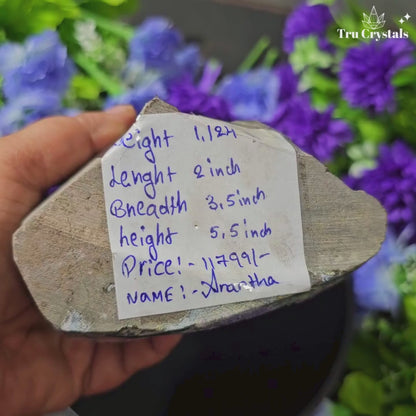 Tru Crystals
weight 1,124
Lenght 2 inch
Breadth 3,5 inch
height 5,5 inch
Price:- 1,799/-
NAME:- Anantha